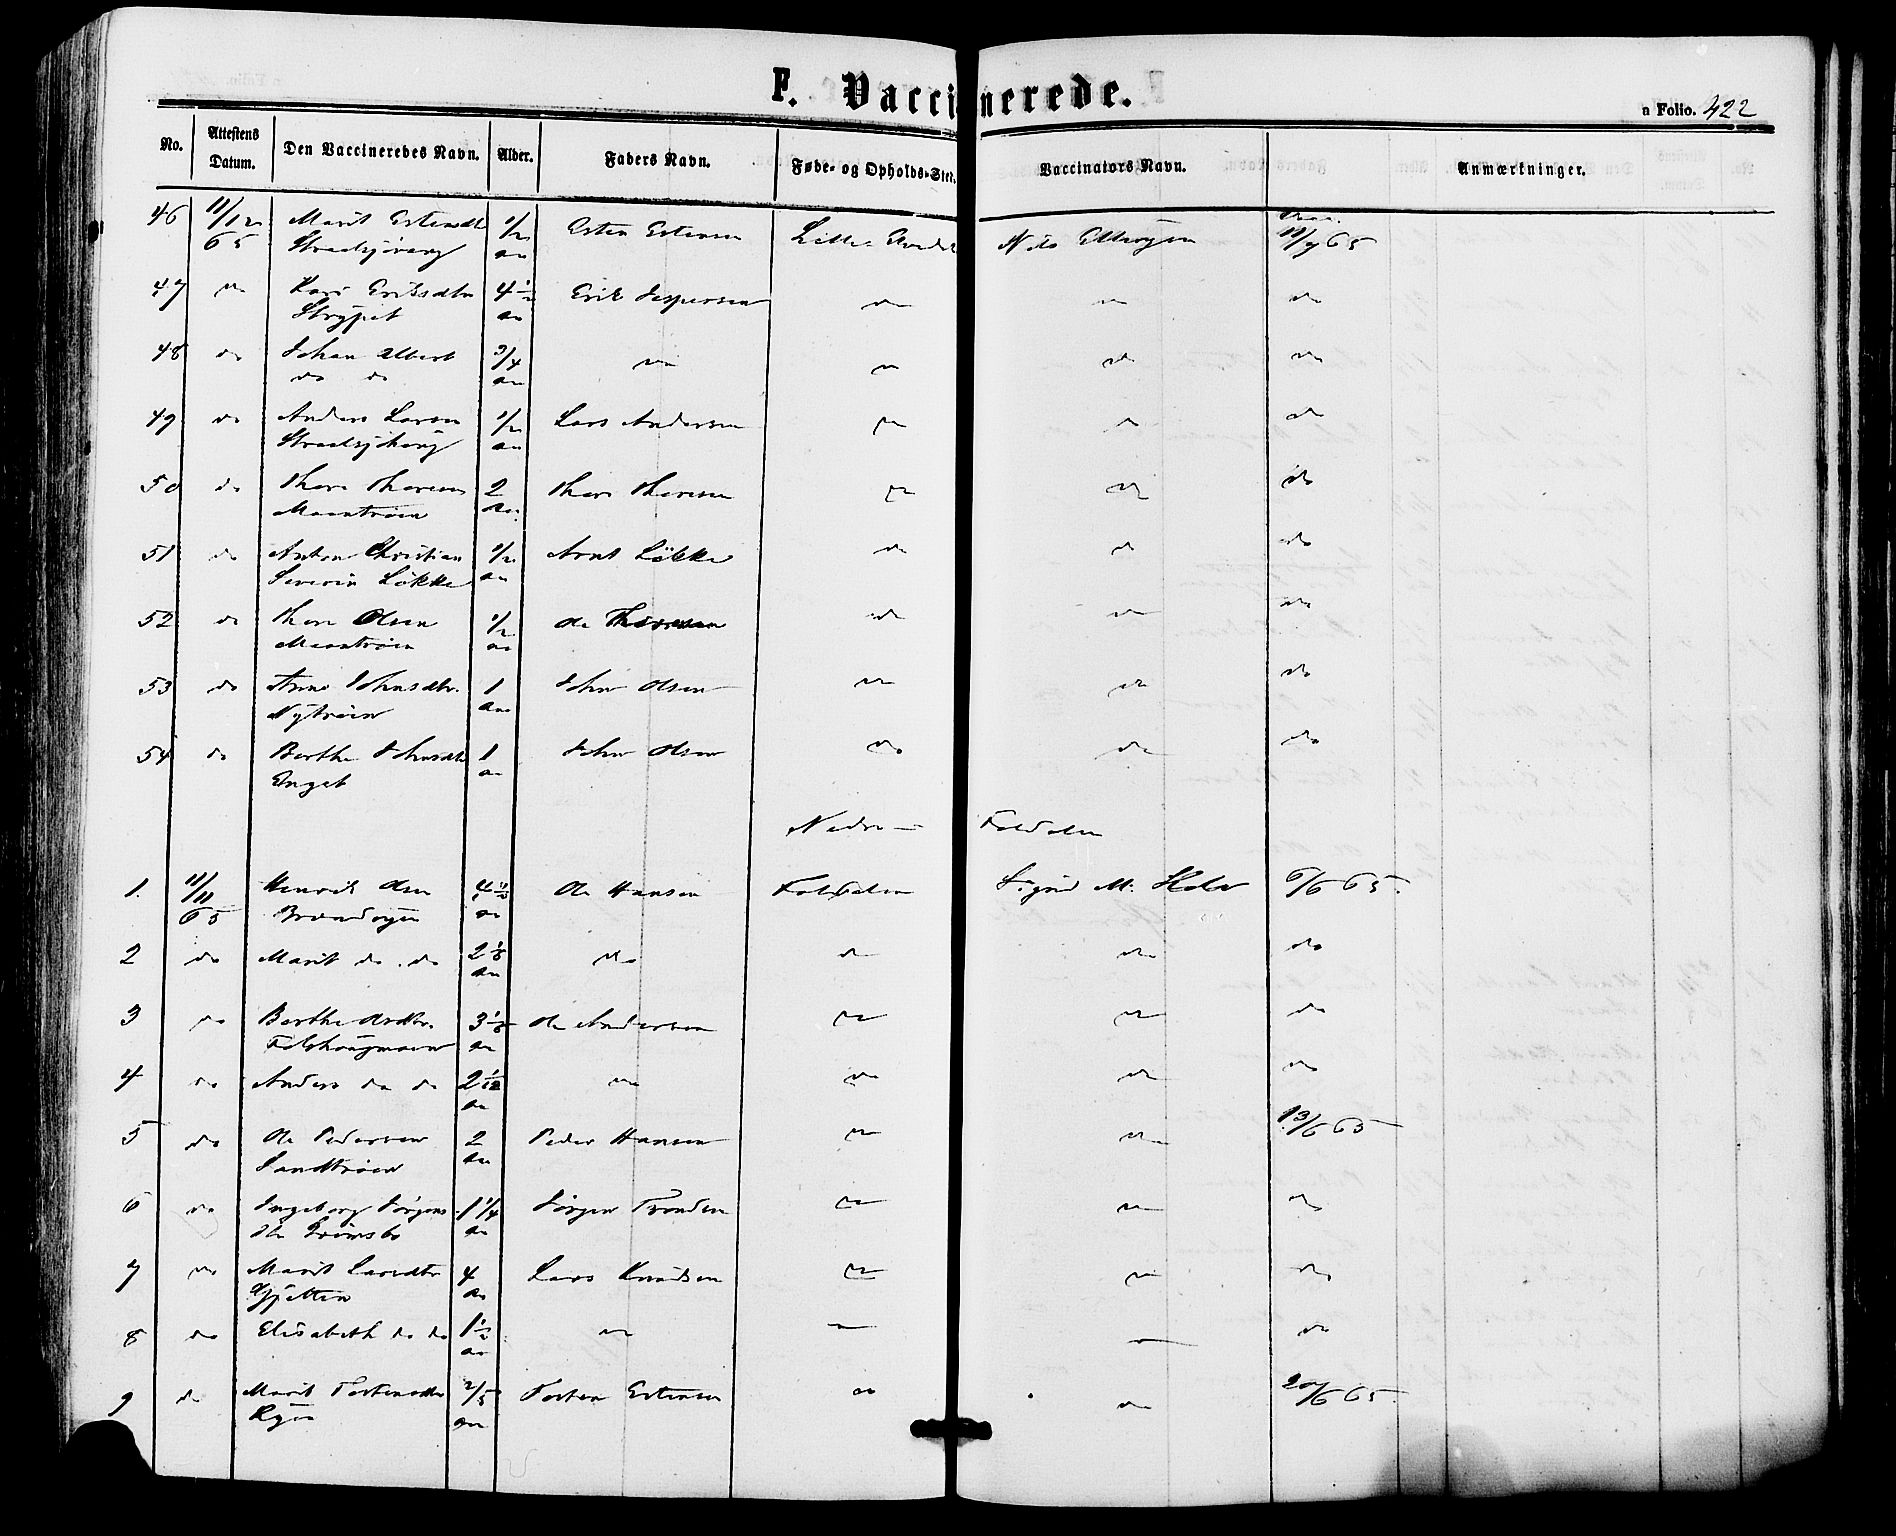 F. Vaccinerede.
a Folio. 422
No. Attestens Datum. Den Vaccineredes Navn. Alder. Faders Navn. Føde- og Opholds-Sted. Vaccinators Navn. Anmærkninger.
46 11/12 65 Marit Estensdtr 1/2 aar Esten Estensen Lille Nils 11/7 65
47 do Kari Eriksdtr 4 1/2 aar Erik Jespersen do do do
Strypet
48 do Johan Albert 3/4 aar do do do do
do do
49 do Anders Larsen 1/2 aar Lars Andersen do do do
50 do Thore Thoresen 2 aar Thore Thoresen do do do
Moentrøen
51 do Anton Christian 1/2 aar Arnt Løkke do do do
Severin Løkke
52 do Thore Olsen 1/2 aar Ole Thoresen do do do
Moentrøen
53 do Anne Johnsdtr. 1 aar John Olsen do do do
Nytrøen
54 do Berthe Johnsdtr 1 aar John Olsen do do do
Enget
Nedre Foldalen
1. 11/11 65 Henrik Olsen 4 1/2 aar Ole Hansen Foldalen Sigrid M. 6/6 65.
Brændøyen
2 do Marit do. do 2 1/8 aar do do do do
3 do Berthe Olsdtr. 3 1/8 aar Ole Andersen do do do
4 do Anders do do 2 1/12 aar do do do do
5 do Ole Pedersen 2 aar Peder Hansen do do 13/6 65
Sandtrøen
6 do Ingeborg Jørgens 1 1/4 aar Jørgen Tronsen do do do
dtr Grimsbo
7 do Marit Larsdtr 4 aar Lars Knudsen do do do
8 do Elisabeth do do 1 1/2 aar do do
9 do Marit Torstensdtr 2/5 aar Torsten Estensen do do 20/6 65.